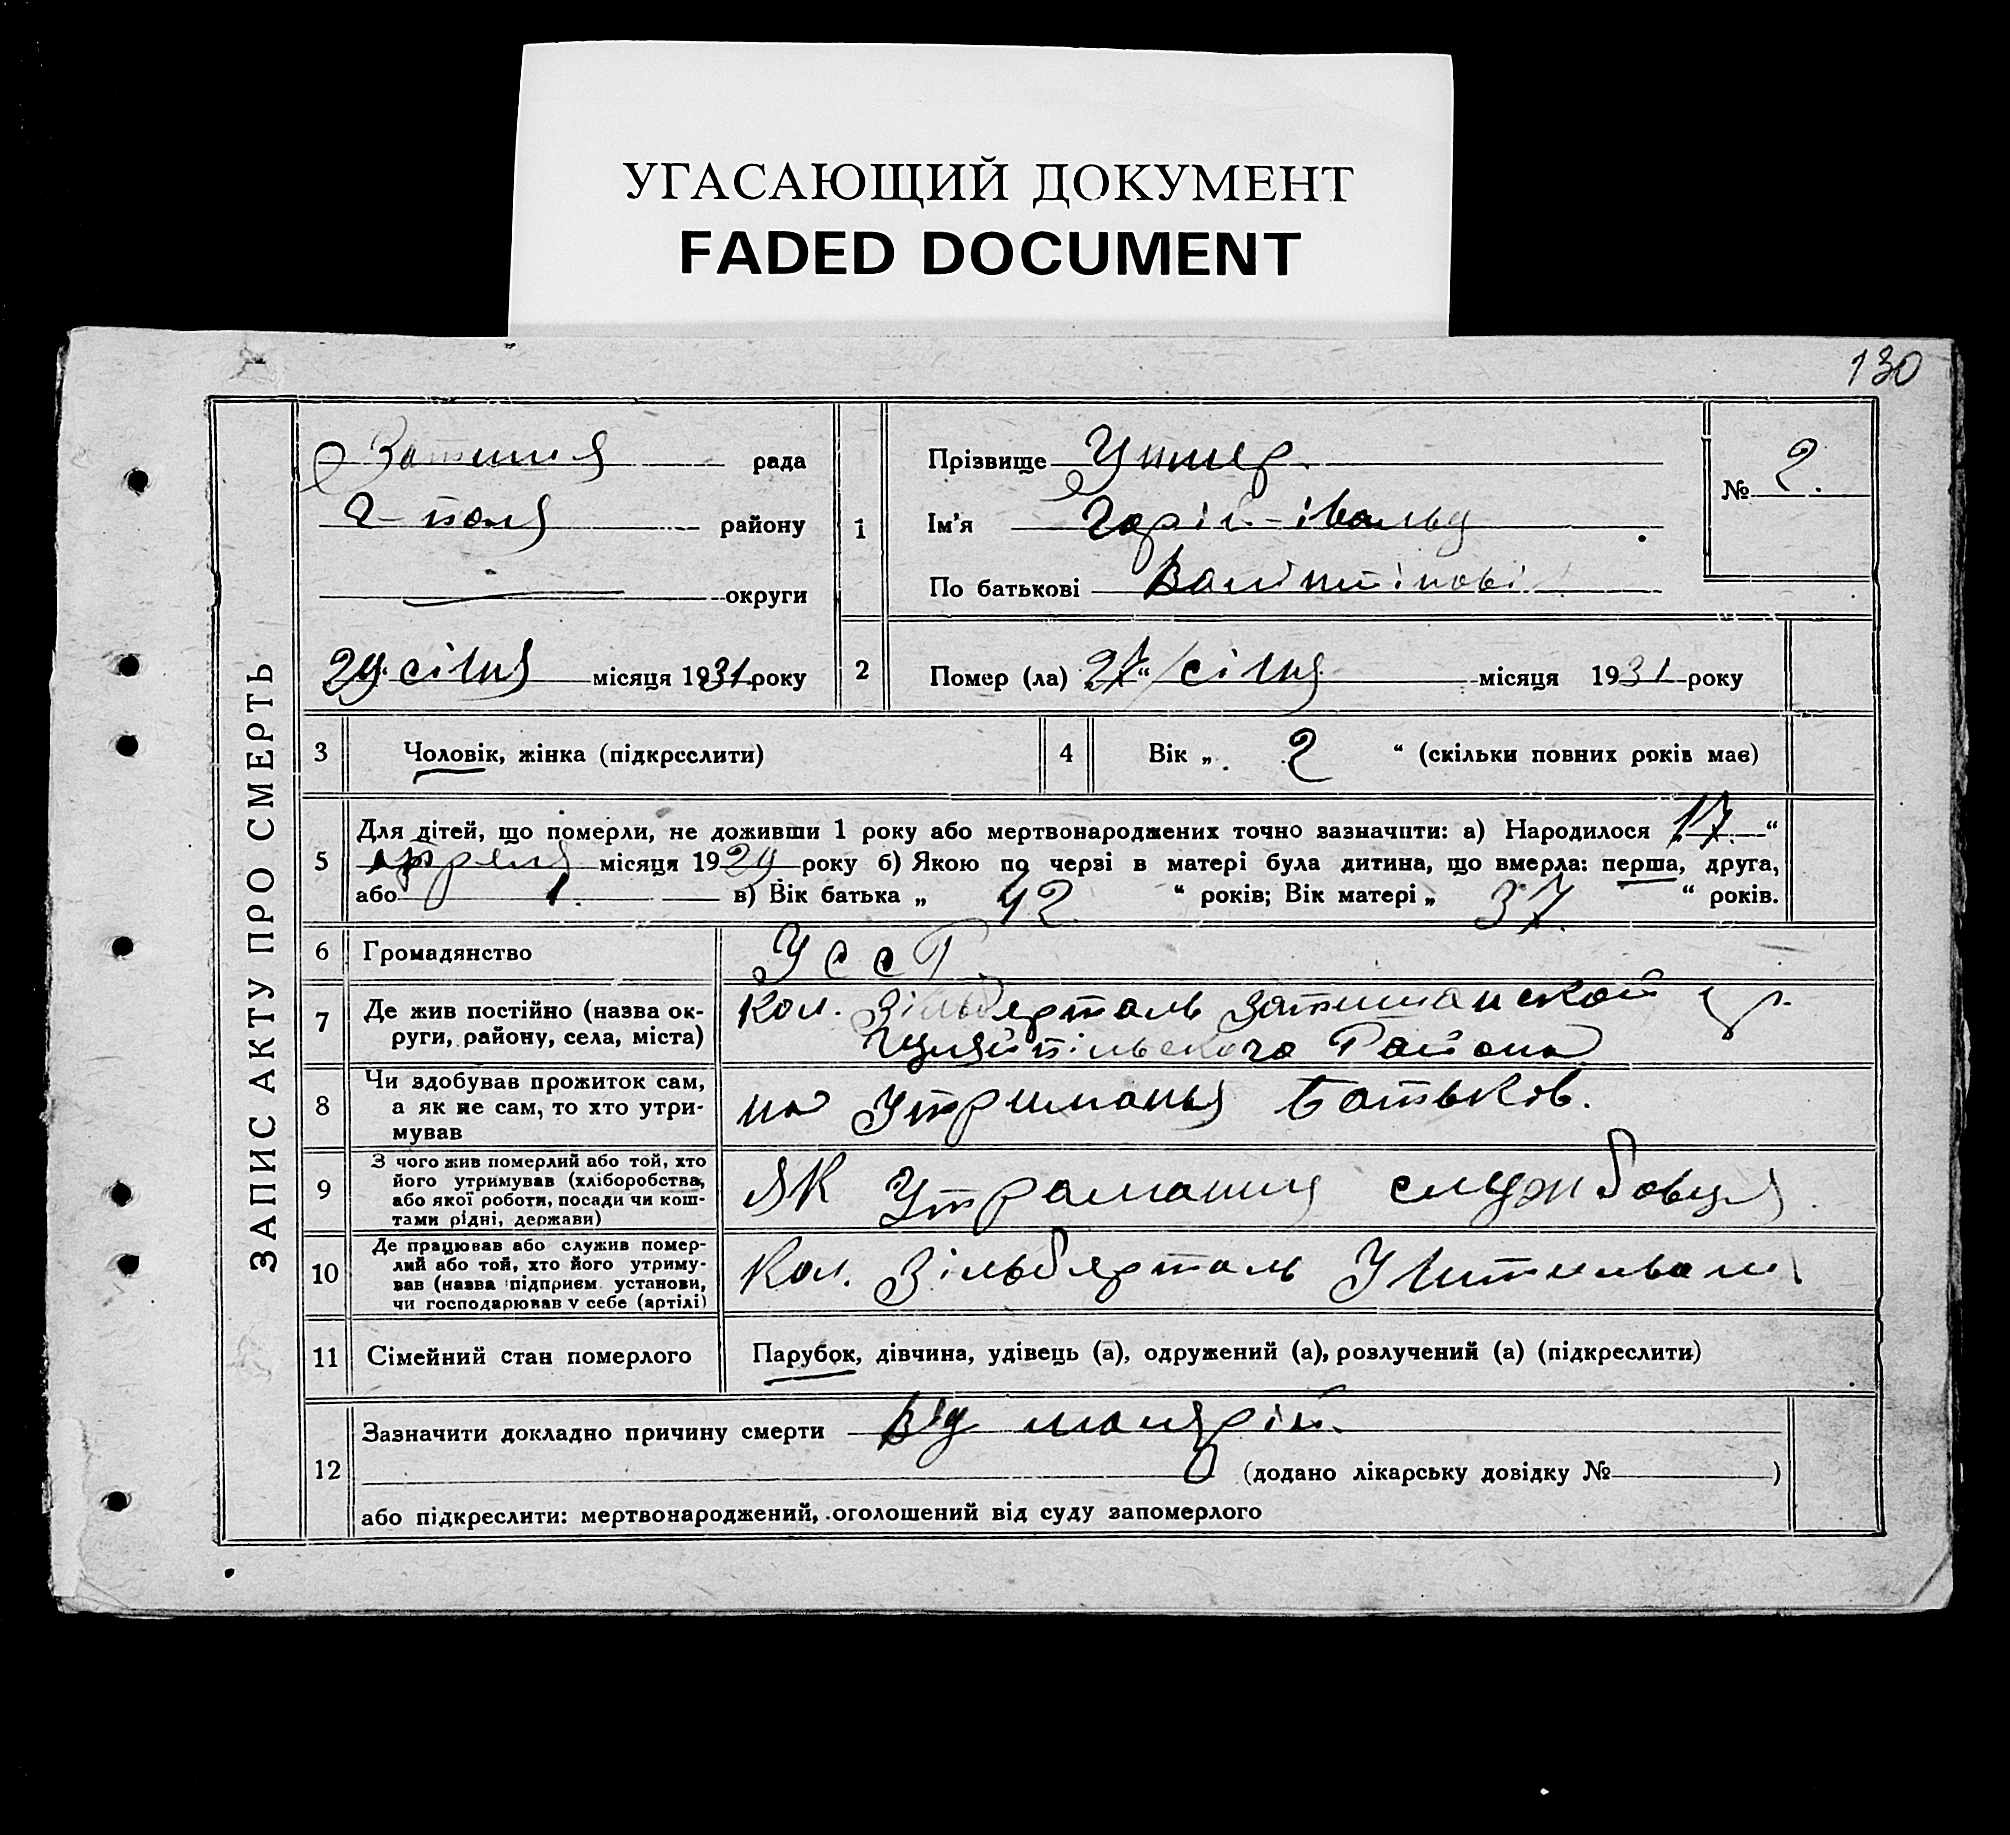 УГАСАЮЩИЙ ДОКУМЕНТ
FADED DOCUMENT
130
ЗАПИС АКТУ ПРО СМЕРТЬ
Затишшя рада
Г-поля району
округи
29 січня місяця 1931 року
1
Прізвище
Ім'я
По батькові
№ 2.
2
Помер (ла) „27“ січня місяця 1931 року
3 Чоловік, жінка (підкреслити)
4 Вік „ 2 “ (скільки повних років має)
5 Для дітей, що померли, не доживши 1 року або мертвонароджених точно зазначити: а) Народилося „17“
апреля місяця 1929 року б) Якою по черзі в матері була дитина, що вмерла: перша, друга,
або 1. в) Вік батька „ 42 “ років; Вік матері „ 37. “ років.
6 Громадянство УССР
7 Де жив постійно (назва округи, району, села, міста) Кол. Зільберталь Затишанской
Гуляйпільского Района
8 Чи здобував прожиток сам, а як не сам, то хто утримував на Утриманья батьков.
9 З чого жив померлий або той, хто його утримував (хліборобства, або якої роботи, посади чи коштами рідні, держави) як службовця
10 Де працював або служив померлий або той, хто його утримував (назва підприєм. установи, чи господарював у себе (артілі) Кол. Зільберталь
11 Сімейний стан померлого Парубок, дівчина, удівець (а), одружений (а), розлучений (а) (підкреслити)
12 Зазначити докладно причину смерти Від
(додано лікарську довідку № )
або підкреслити: мертвонароджений, оголошений від суду запомерлого